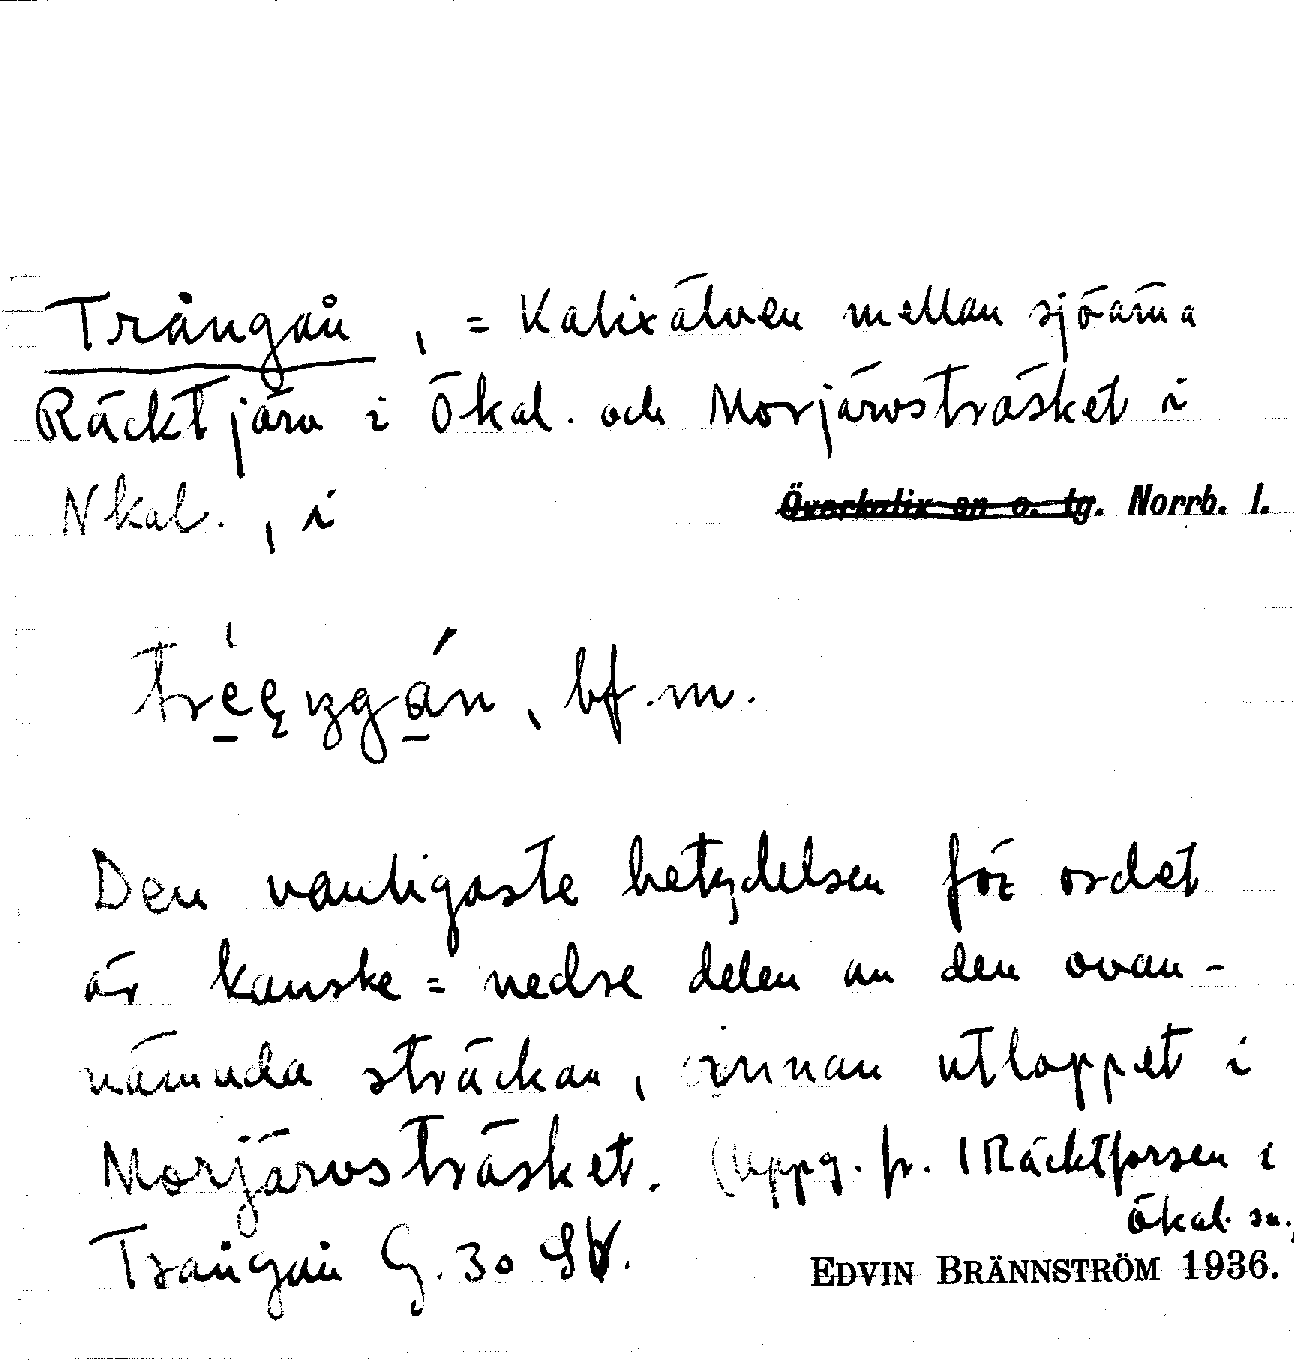 Trångån, = Kalixälven mellan sjöarna
Räcktjärv i Ökal. och Morjärvsträsket i
Nkal., i Överkalix sn o. tg. Norrb. l.
bf. m.
Den vanligaste betydelsen för ordet
är kanske = nedre delen av den ovan-
nämnda sträckan, innan utloppet i
Morjärvsträsket. (Uppg. fr. Räcktforsen i
Ökal. sn.
Trångån G. 30 SV.
EDVIN BRÄNNSTRÖM 1936.